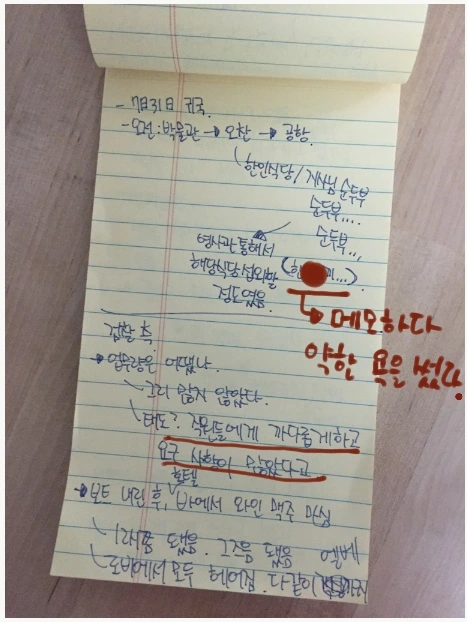 - 7月31日 귀국.
- 오전: 박물관 → 오찬 → 공항.
한인식당 / 지사님 순두부
순두부...
순두부...
영사관 통해서
해당식당 섭외할
정도였음.
(한 ...)
→ 메모하다
약한 욕을 썼다.
검찰 측
→ 업무량은 어땠나.
그리 많지 않았다.
태도? 직원들에게 까다롭게하고
요구 사항이 많았다고
호텔
→ 보트 내린 후, 바에서 와인 맥주 마심
1시쯤 됐음. 그즈음 됐음 엘베
로비에서 모두 헤어짐. 다같이